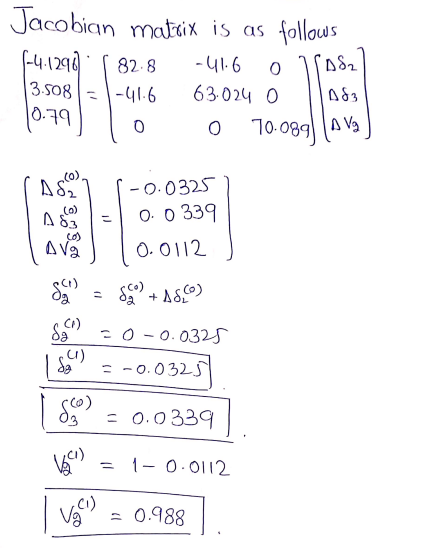 Jacobian matrix is as follows
[-4.1296; 3.508; 0.79] = [82.8 -41.6 0; -41.6 63.024 0; 0 0 70.089] [Δδ₂; Δδ₃; ΔV₂]
[Δδ₂⁽⁰⁾; Δδ₃⁽⁰⁾; ΔV₂⁽⁰⁾] = [-0.0325; 0.0339; 0.0112]
δ₂⁽¹⁾ = δ₂⁽⁰⁾ + Δδ₂⁽⁰⁾
δ₂⁽¹⁾ = 0 - 0.0325
δ₂⁽¹⁾ = -0.0325
δ₃⁽⁰⁾ = 0.0339
V₂⁽¹⁾ = 1 - 0.0112
V₂⁽¹⁾ = 0.988